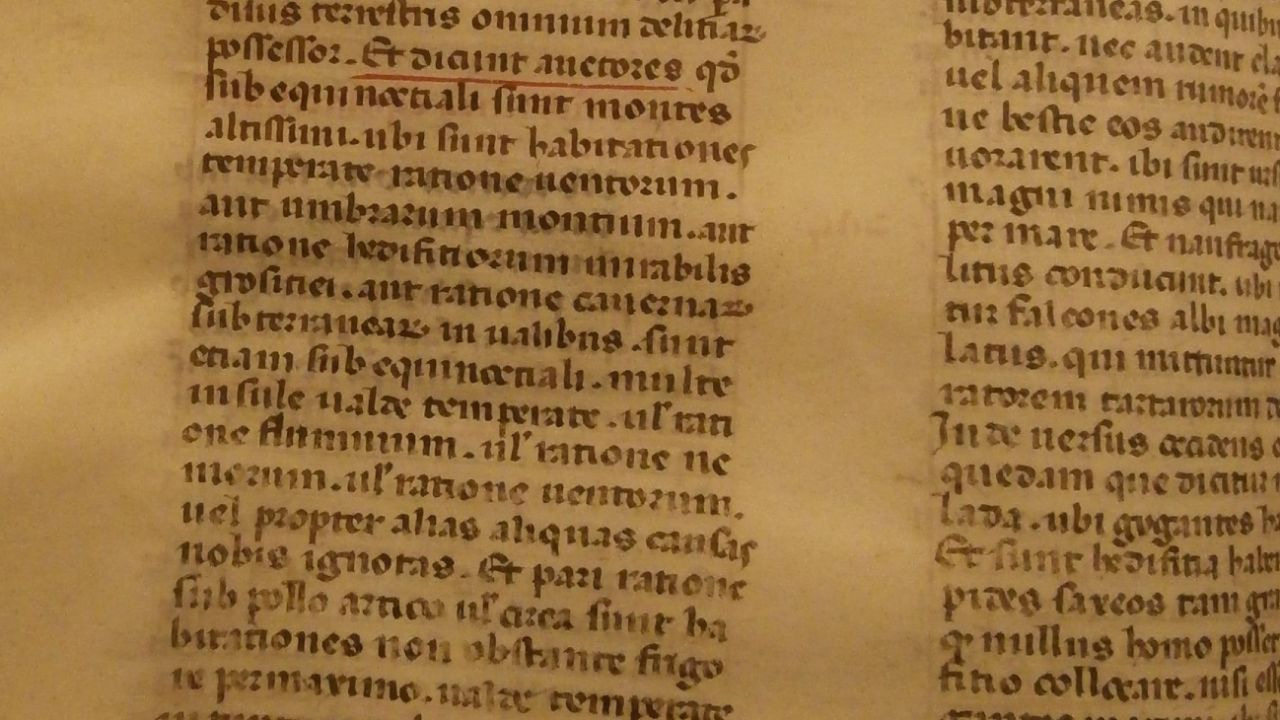 diuus terrestris omnium delitiaꝝ
possessor. Et dicunt auctores qd̄
sub equinoctiali sunt montes
altissimi. ubi sunt habitationes
temperate ratione uentorum.
aut umbrarum montium. aut
ratione hedifitiorum mirabilis
grositiei. aut ratione cauernaꝝ
subterraneaꝝ in ualibus. sunt
etiam sub equinoctiali. multe
insule ualde temperate. ul' rati
one fluminum. ul' ratione ne
morum. ul' ratione uentorum.
uel propter alias aliquas causas
nobis ignotas. Et pari ratione
sub pollo artico ul' circa sunt ha
bitationes non obstante frigo
re permaximo. ualde temperate
subterraneas. in quibu
bitant. nec audent
uel aliquem rumorē
ne bestie eos audirent
uorarent. ibi sunt urs
magni nimis qui na
per mare. Et naufrag
litus conducunt. ubi
tur falcones albi mag
latus. qui mittuntur
ratorem tartarorum
Inde uersus occidens
quedam que dicitur
lada. ubi gygantes h
Et sunt hedifitia haben
pides saxeos tam gra
qꝫ nullus homo posset
fitio collocare. nisi ess